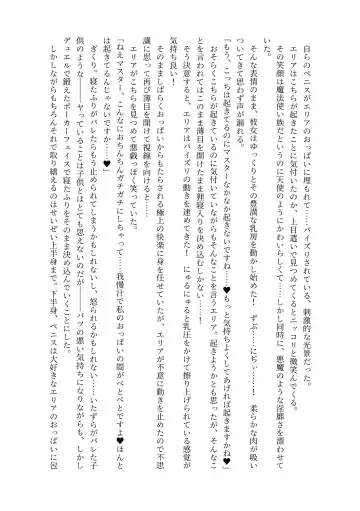 自らのペニスがエリアのおっぱいに埋もれて……パイズリされている、刺激的な光景だった。
エリアはこちらが起きたことに気付いたのか、上目遣いで見つめてくるとニッコリと微笑んでくる。
その笑顔は魔法使い族だというのに天使のようにかわいらしくて……しかし同時に、悪魔のような淫靡さを漂わせて
いた。
そんな表情のまま、彼女はゆっくりとその豊満な乳房を動かし始めた！　ずぷ……にぢぃ……！　柔らかな肉が吸い
ついてきて思わず声が漏れる。
「もう、こっちは起きてるのにマスターなかなか起きないですね……♥もっと気持ちよくしてあげれば起きますかね♥」
おそらくこちらが起きているのに気付いていながらもそんなことを言うエリア。起きようかとも思ったが、そんなこ
とを言われてはこのまま薄目を開けたまま狸寝入りを決め込むしかない！
そう決意すると、エリアはパイズリの動きを速めてきた！　にゅるにゅると乳圧をかけて擦り上げられている感覚が
気持ち良い！
そのまましばらくおっぱいからもたらされる極上の快楽に身を任せていたが、エリアが不意に動きを止めたので不思
議に思って再び薄目を開けて視線を向けると……
エリアがこちらを見つめて悪戯っぽく笑っていた。
「ねえマスター、こんなにおちんちんガチガチにしちゃって……我慢汁で私のおっぱいの間がべとべとですよ♥ほんと
は起きてるんじゃないですか……♥」
ぎくり。寝たふりがバレたらもう止められてしまうかもしれないし、怒られるかもしれない……いたずらがバレた子
供のような――やっていることは子供とはとても思えないのだが――バツの悪い気持ちになりながらも、しかし、
デュエルで鍛えたポーカーフェイスで寝たふりをそのまま決め込んでいくことにした。
しかしながらもちろんそれで取り繕えるのはせいぜい上半身まで。下半身、ペニスは大好きなエリアのおっぱいに包